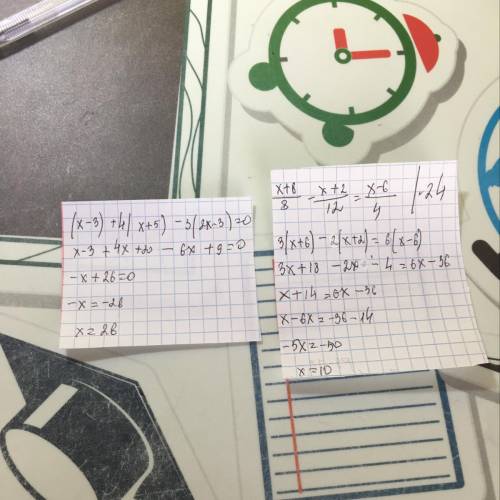 (x-3)+4(x+5)-3(2x-3)=0
x-3+4x+20-6x+9=0
-x+26=0
-x=-26
x=26
x+8/8 - x+2/12 = x-6/4 |·24
3(x+6)-2(x+2)=6(x-6)
3x+18-2x-4=6x-36
x+14=6x-36
x-6x=-36-14
-5x=-50
x=10